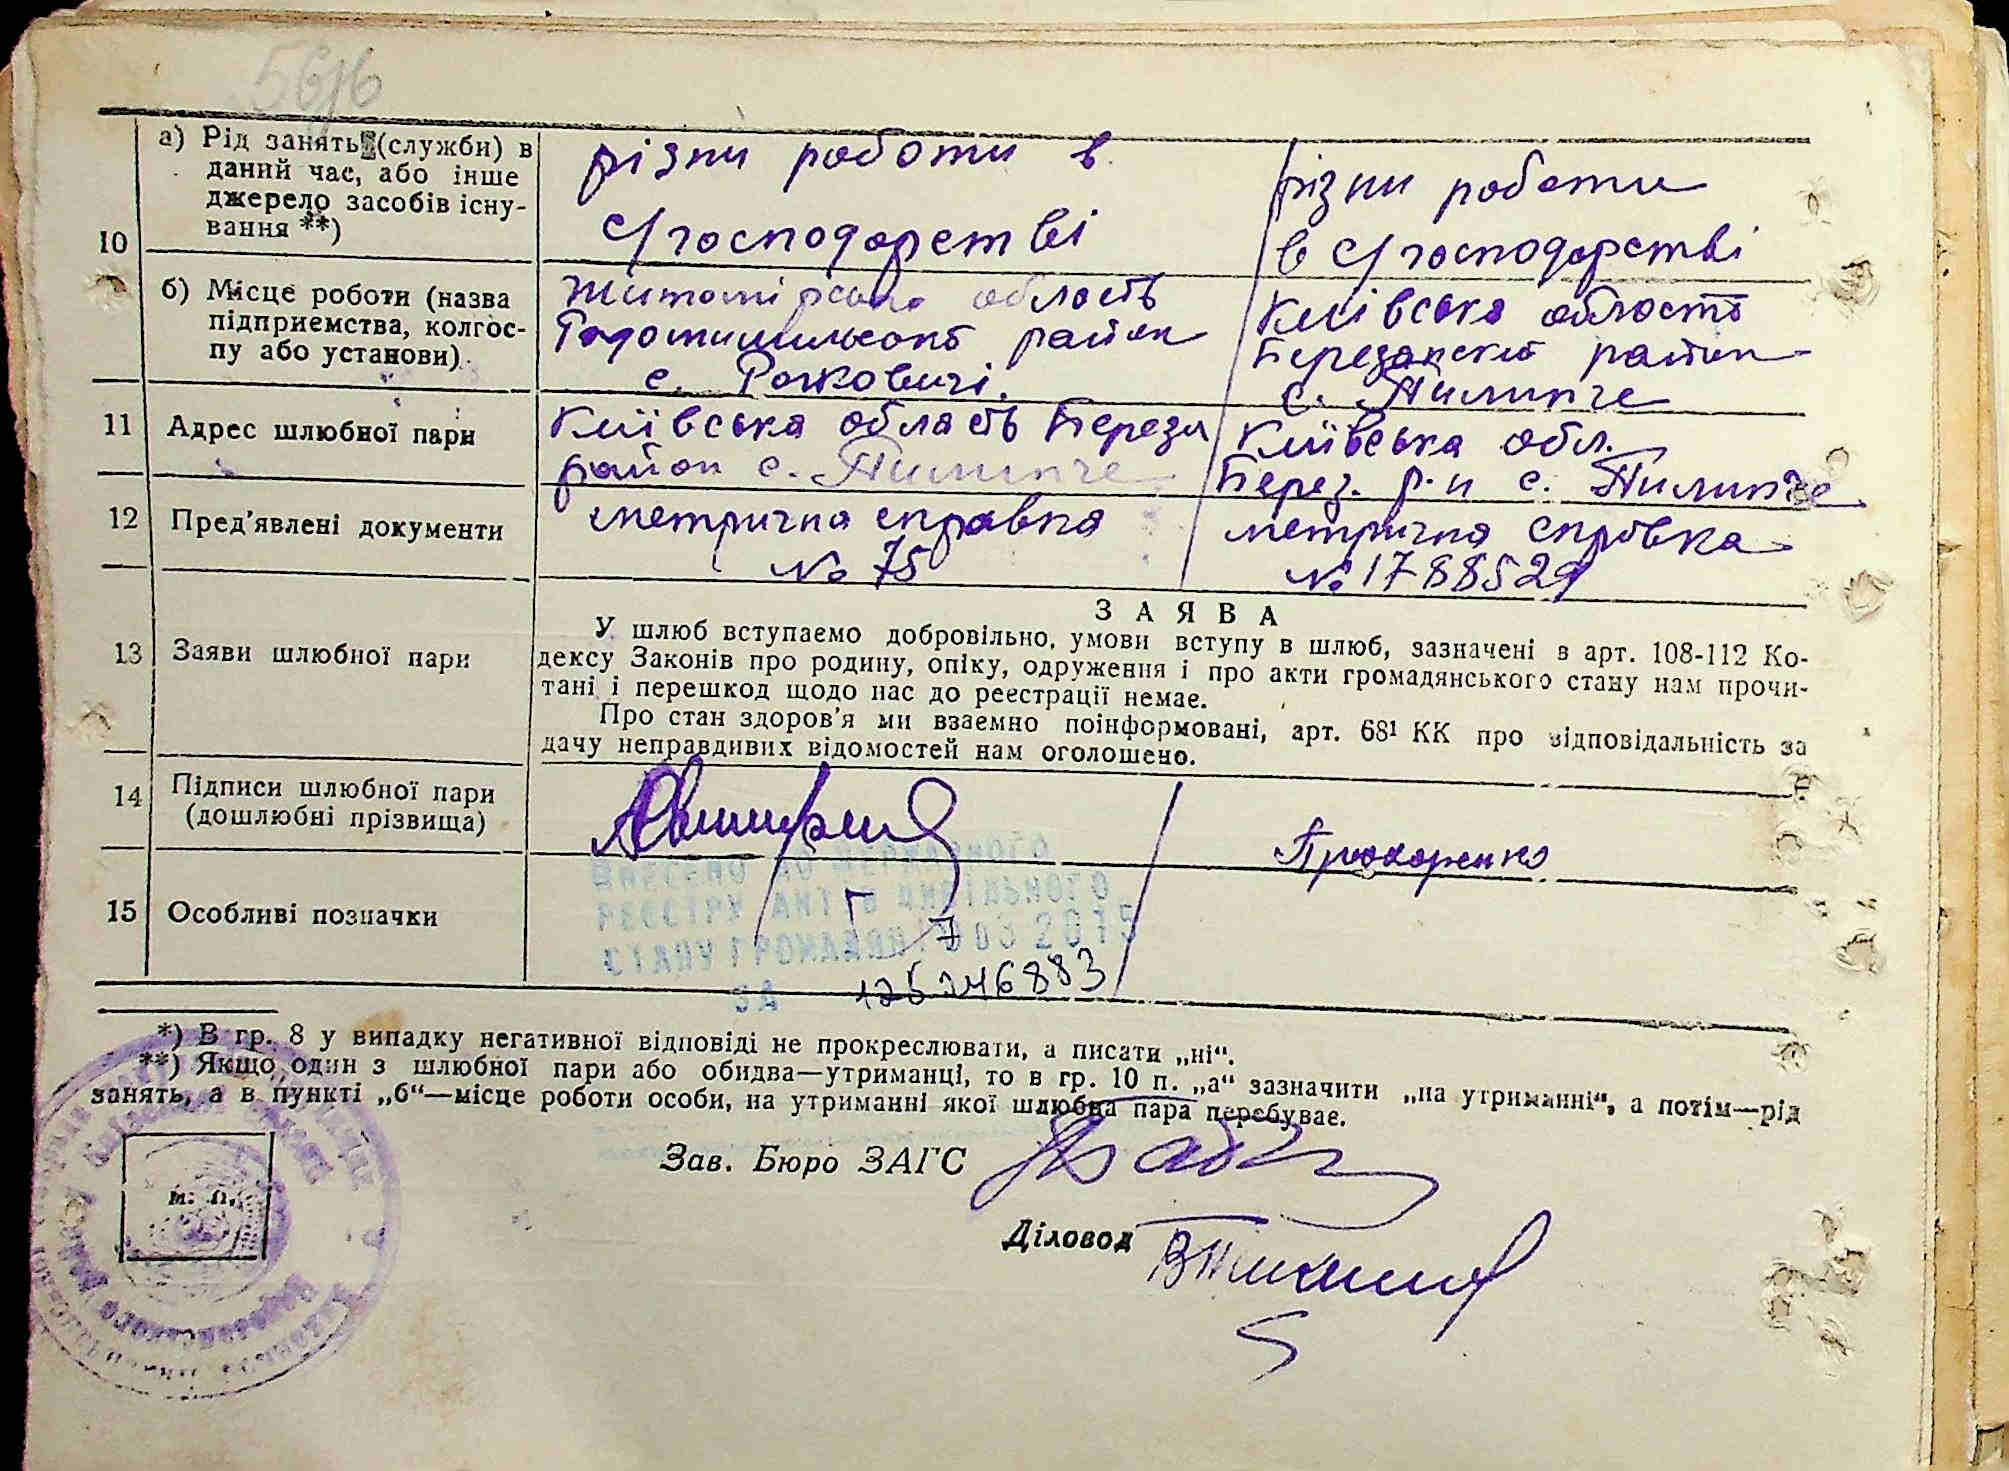 а) Рід занять (служби) в
даний час, або інше
джерело засобів існу-
вання **)
10
різни роботи в
с/господарстві
різни роботи
в с/господарстві
б) Місце роботи (назва
підприємства, колгос-
пу або установи).
область
район
с.
Київська область
район
с. Пилипче
11
Адрес шлюбної пари
Київська область Береза
район с. Пилипче
Київська обл.
Берез. р-н с. Пилипче
12
Пред'явлені документи
метрична справка
№ 75
метрична справка
№ 1788529
13
Заяви шлюбної пари
ЗАЯВА
У шлюб вступаємо добровільно, умови вступу в шлюб, зазначені в арт. 108-112 Ко-
дексу Законів про родину, опіку, одруження і про акти громадянського стану нам прочи-
тані і перешкод щодо нас до реєстрації немає.
Про стан здоров'я ми взаємно поінформовані, арт. 68¹ КК про відповідальність за
дачу неправдивих відомостей нам оголошено.
14
Підписи шлюбної пари
(дошлюбні прізвища)
Прохоренко
15
Особливі позначки
ВНЕСЕНО ДО ДЕРЖАВНОГО
РЕЄСТРУ АКТІВ ЦИВІЛЬНОГО
СТАНУ ГРОМАДЯН 03 2015
ЗА
*) В гр. 8 у випадку негативної відповіді не прокреслювати, а писати „ні“.
**) Якщо один з шлюбної пари або обидва—утриманці, то в гр. 10 п. „а“ зазначити „на утриманні“, а потім—рід
занять, а в пункті „б“—місце роботи особи, на утриманні якої шлюбна пара перебуває.
Зав. Бюро ЗАГС
Діловод
м. п.